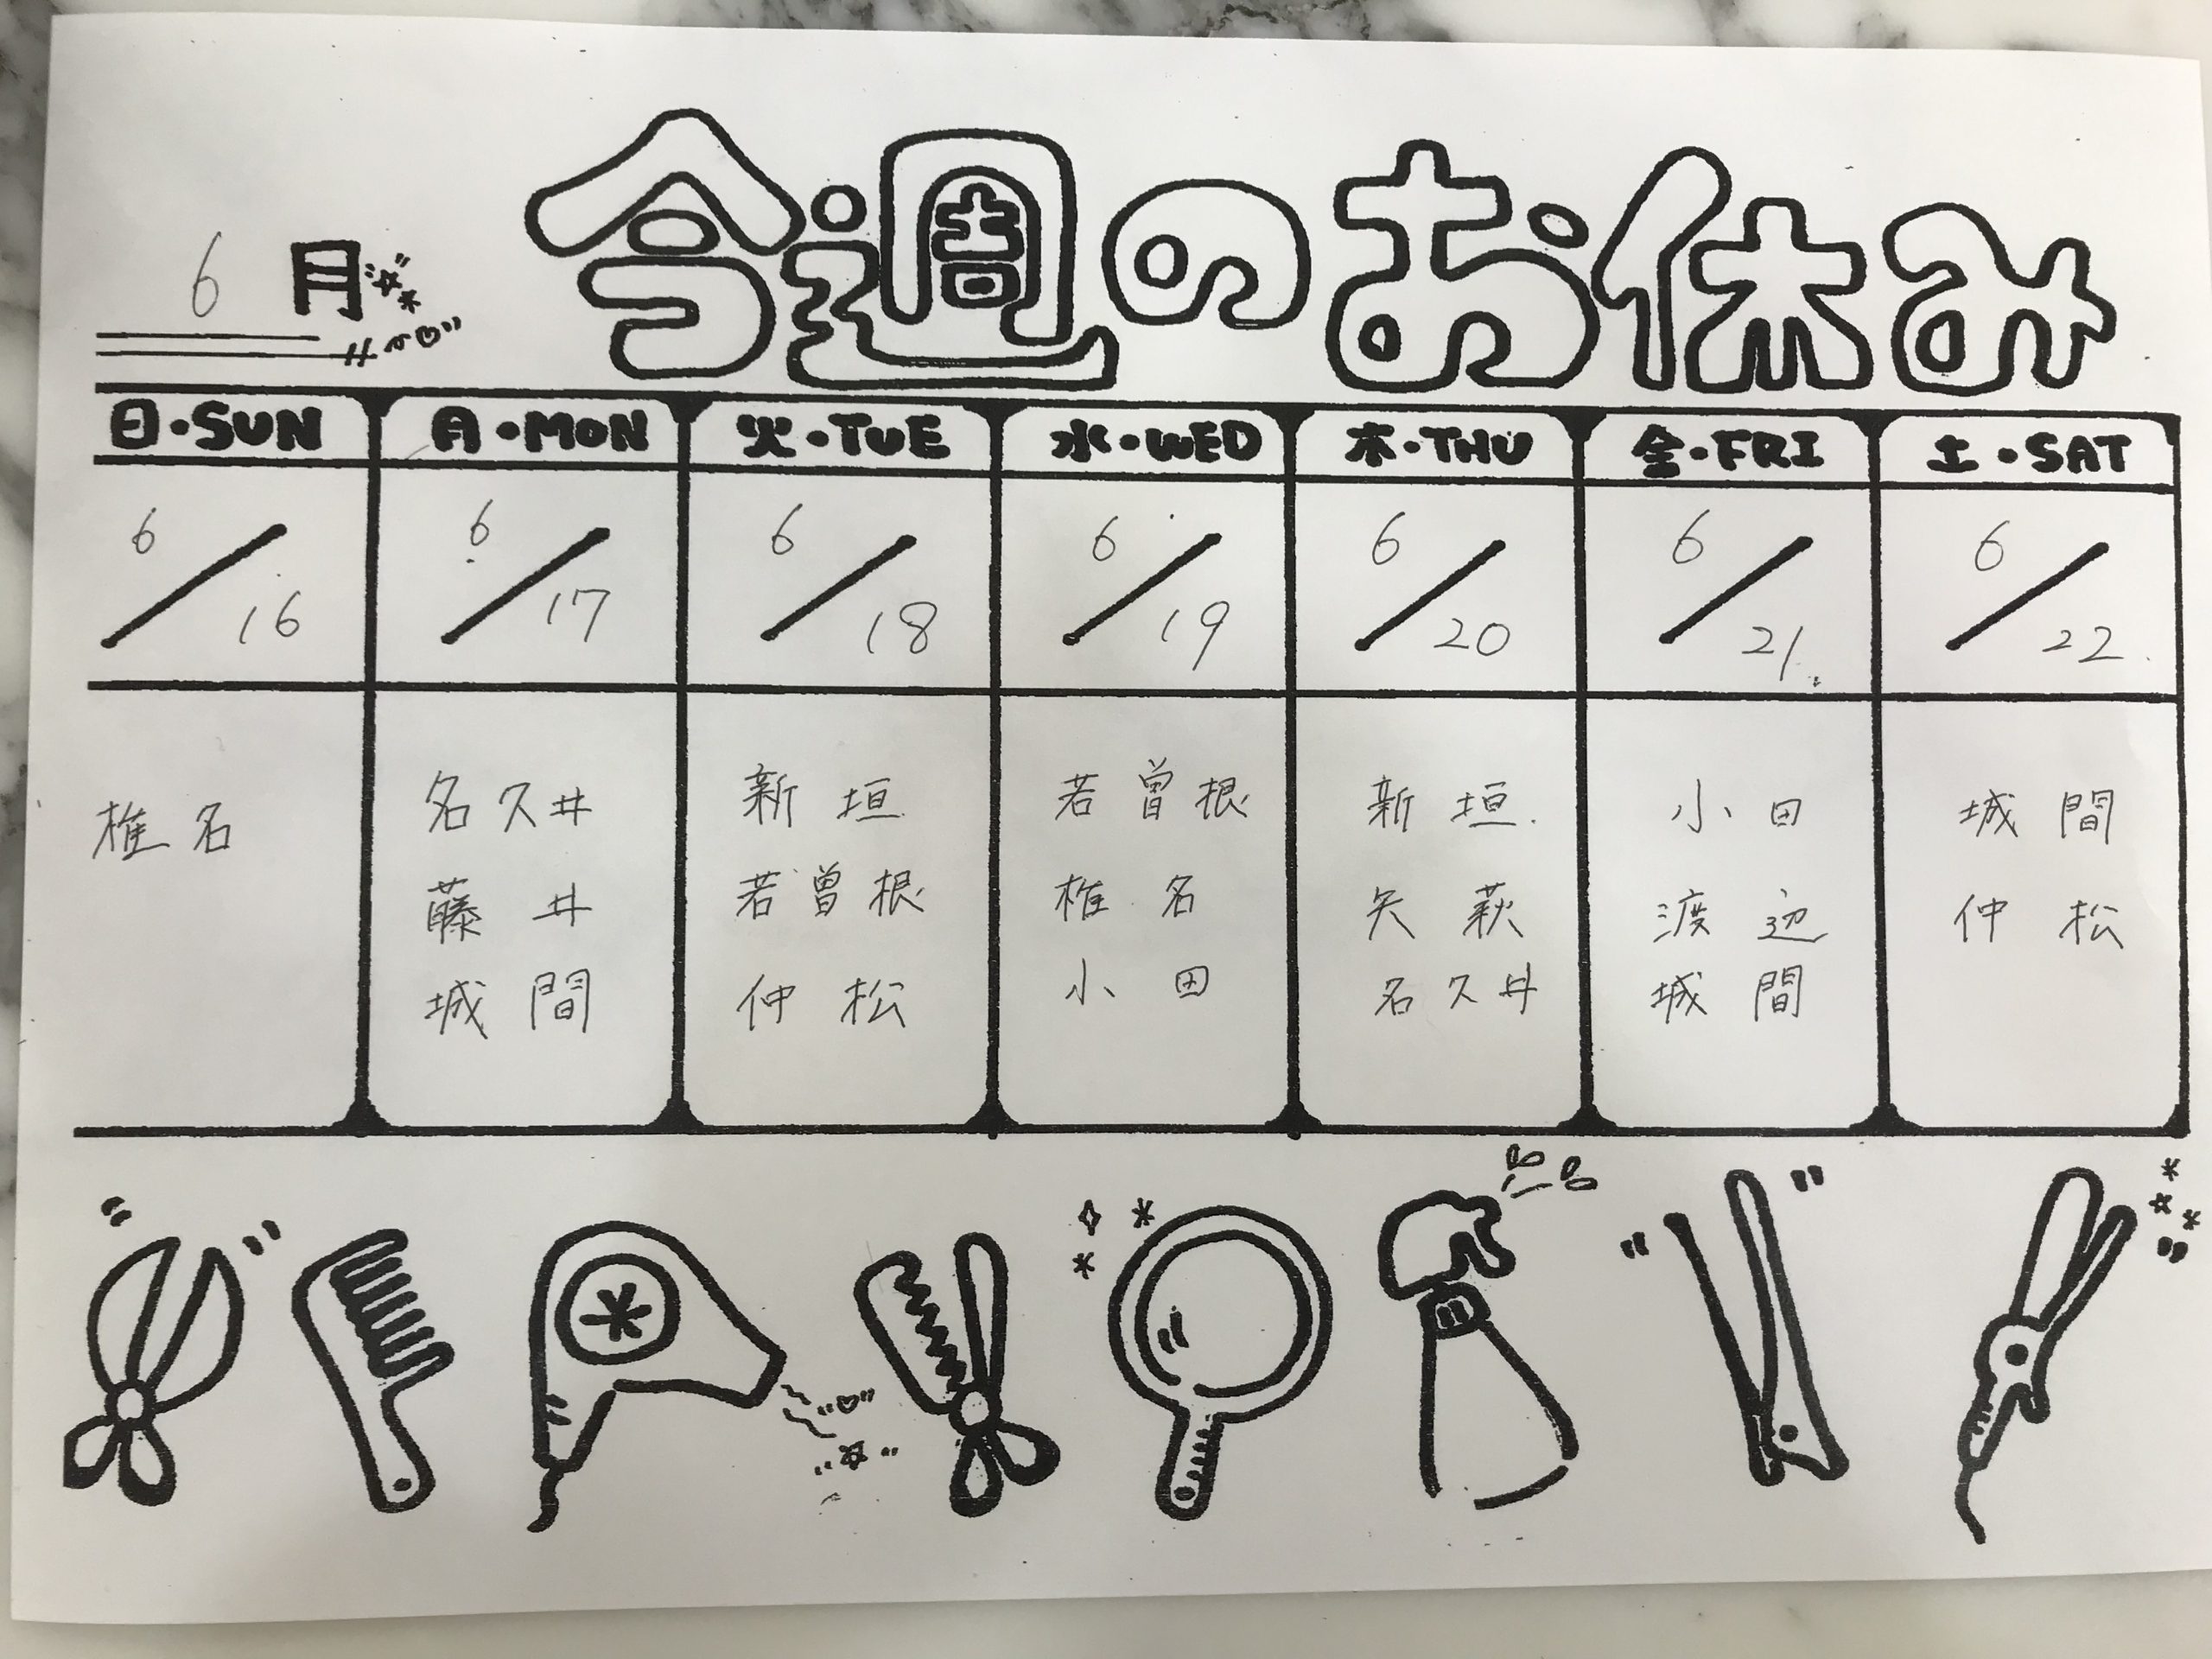 6月
今週のお休み
日・SUN 月・MON 火・TUE 水・WED 木・THU 金・FRI 土・SAT
6/16 6/17 6/18 6/19 6/20 6/21 6/22
椎名 名久井 新垣 若曽根 新垣 小田 城間
藤井 若曽根 椎名 矢萩 渡辺 仲松
城間 仲松 小田 名久井 城間